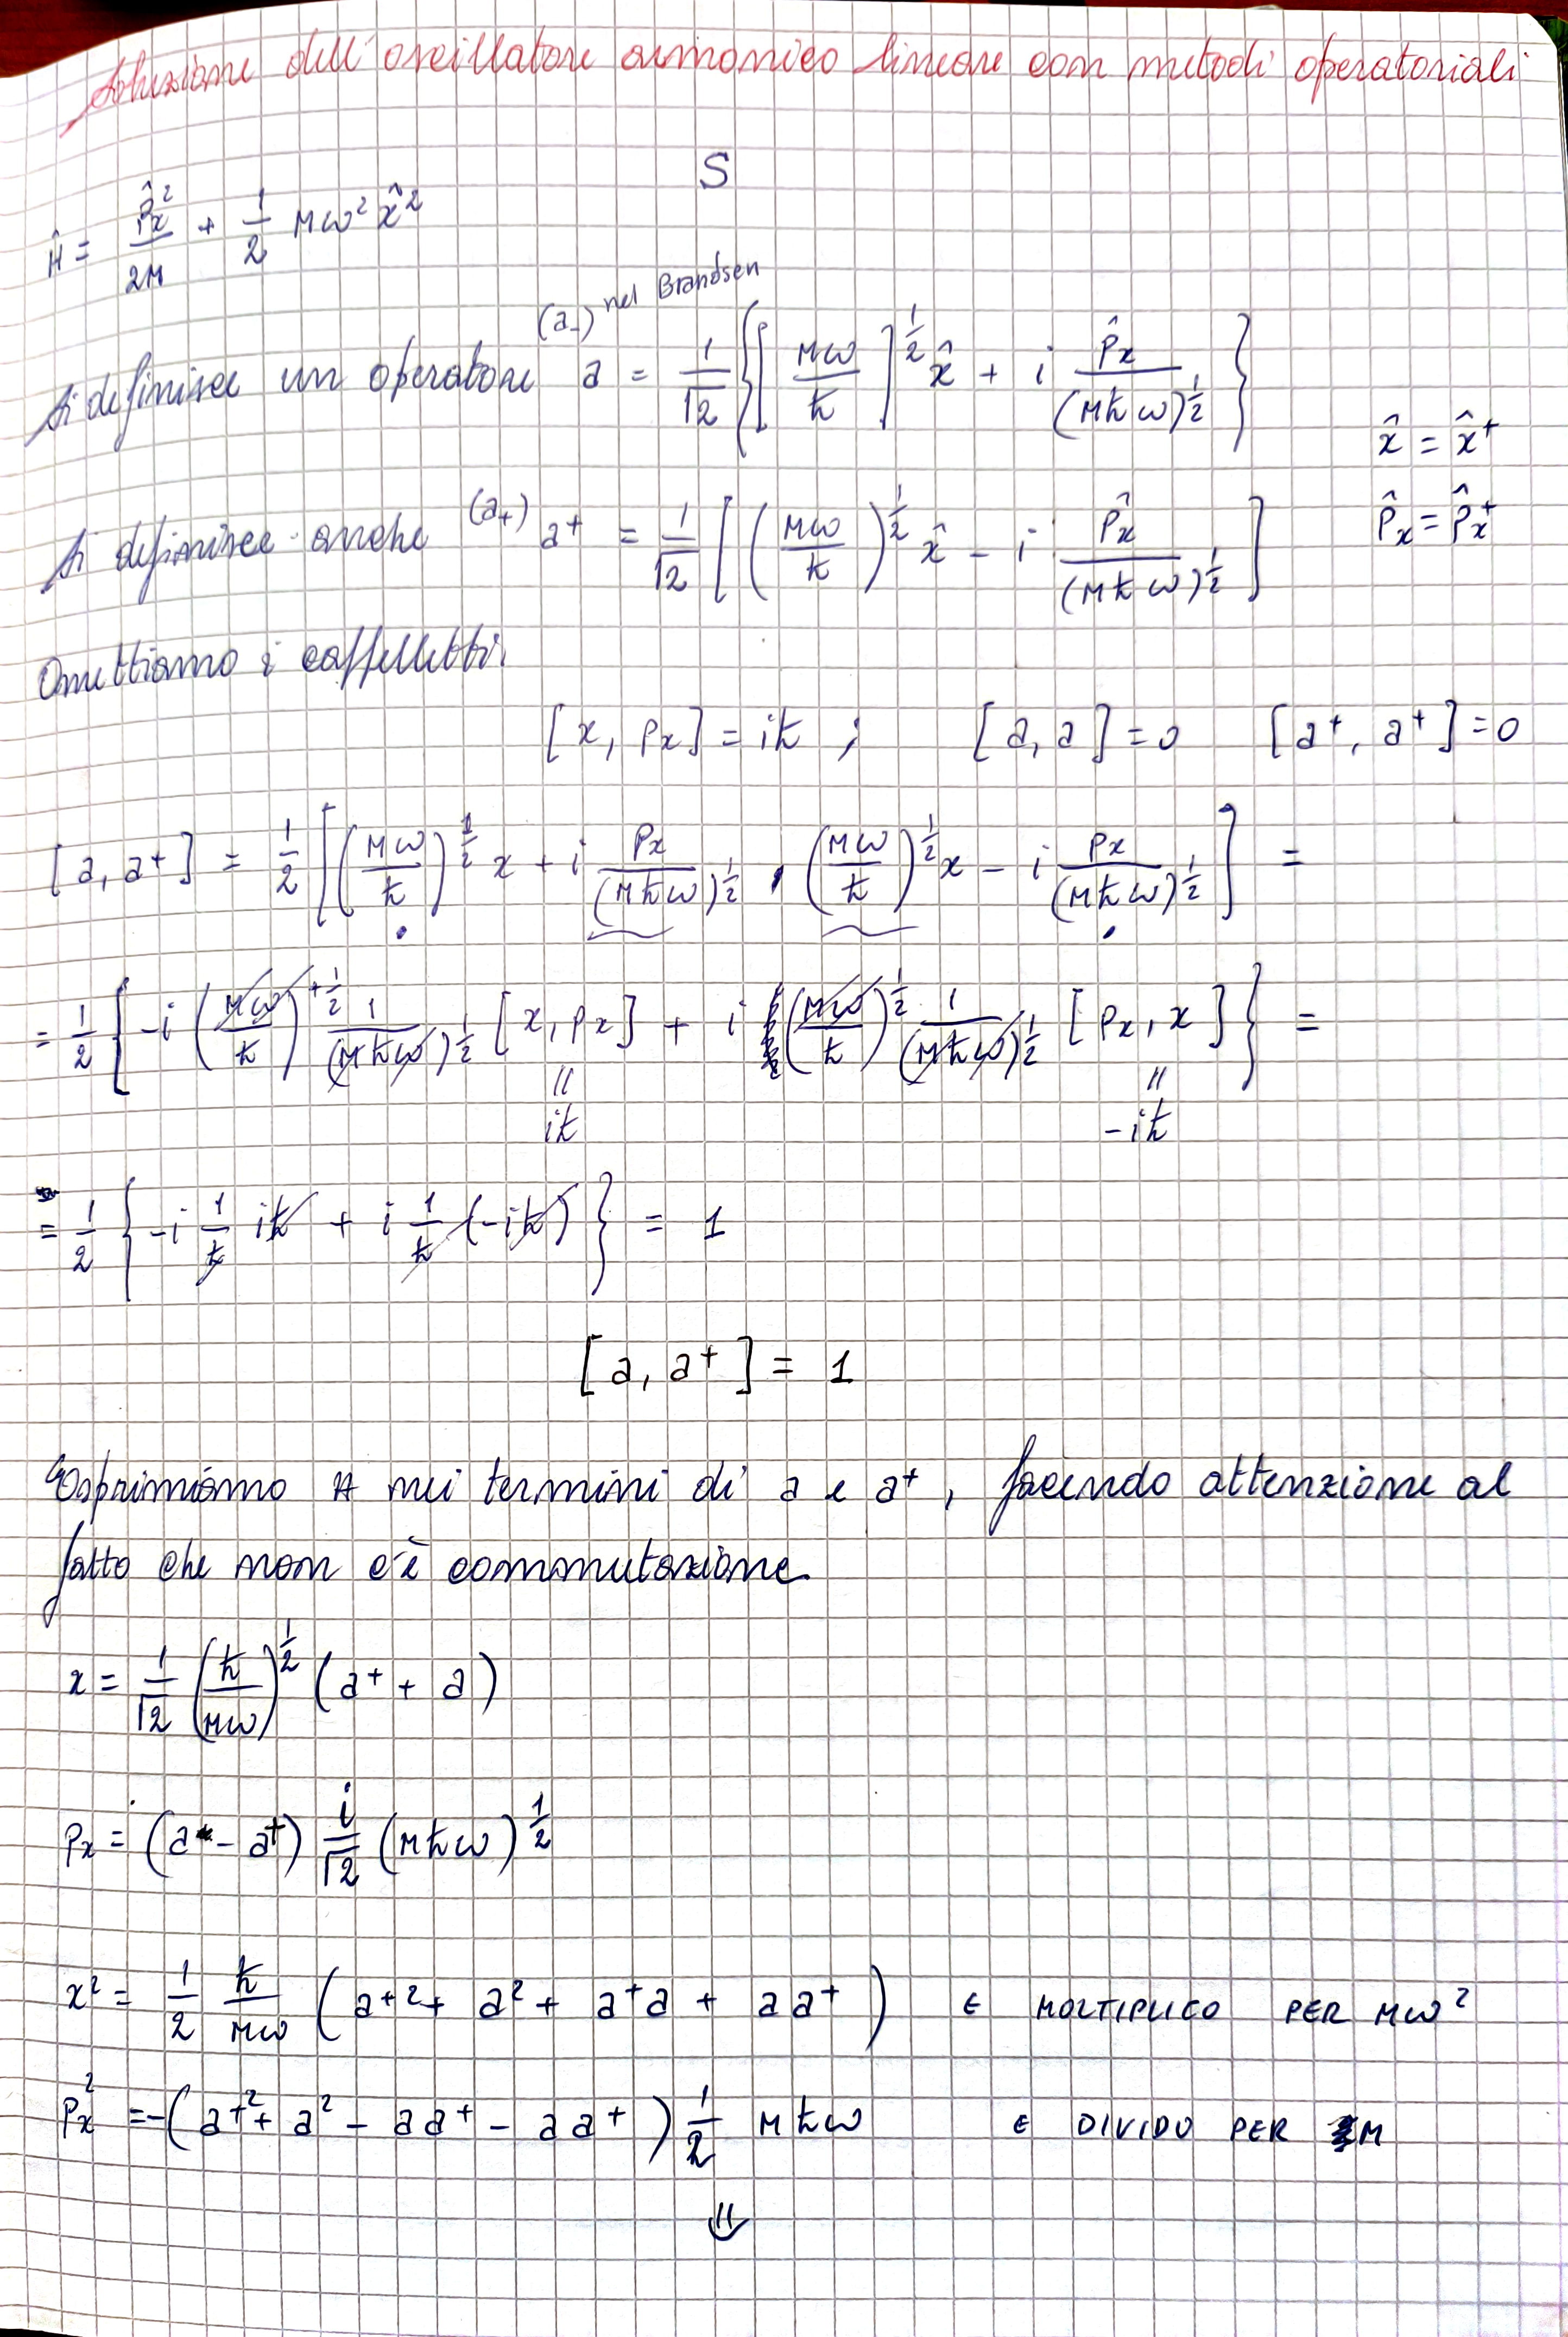 Soluzione dell'oscillatore armonico lineare con metodi operatoriali
S
Ĥ = p̂x²/2M + 1/2 Mω² x̂²
(a-) nel Brandsen
Si definisce un operatore a = 1/√2 {[Mω/ħ]^1/2 x̂ + i p̂x/(Mħω)^1/2}
x̂ = x̂⁺
Si definisce anche (a+) a⁺ = 1/√2 [(Mω/ħ)^1/2 x̂ - i p̂x/(Mħω)^1/2]
p̂x = p̂x⁺
Omettiamo i cappelletti.
[x, px] = iħ ; [a, a] = 0 [a⁺, a⁺] = 0
[a, a⁺] = 1/2 [(Mω/ħ)^1/2 x + i px/(Mħω)^1/2 , (Mω/ħ)^1/2 x - i px/(Mħω)^1/2] =
= 1/2 {-i (Mω/ħ)^+1/2 1/(Mħω)^1/2 [x, px] + i (Mω/ħ)^1/2 1/(Mħω)^1/2 [px, x]} =
= iħ = -iħ
= 1/2 {-i 1/ħ iħ + i 1/ħ (-iħ)} = 1
[a, a⁺] = 1
Esprimiamo H nei termini di a e a⁺, facendo attenzione al
fatto che non c'è commutazione
x = 1/√2 (ħ/Mω)^1/2 (a⁺ + a)
px = (a - a⁺) i/√2 (Mħω)^1/2
x² = 1/2 ħ/Mω (a⁺² + a² + a⁺a + aa⁺) E MOLTIPLICO PER Mω²
px² = -(a⁺² + a² - aa⁺ - aa⁺) 1/2 Mħω E DIVIDO PER M
⇓